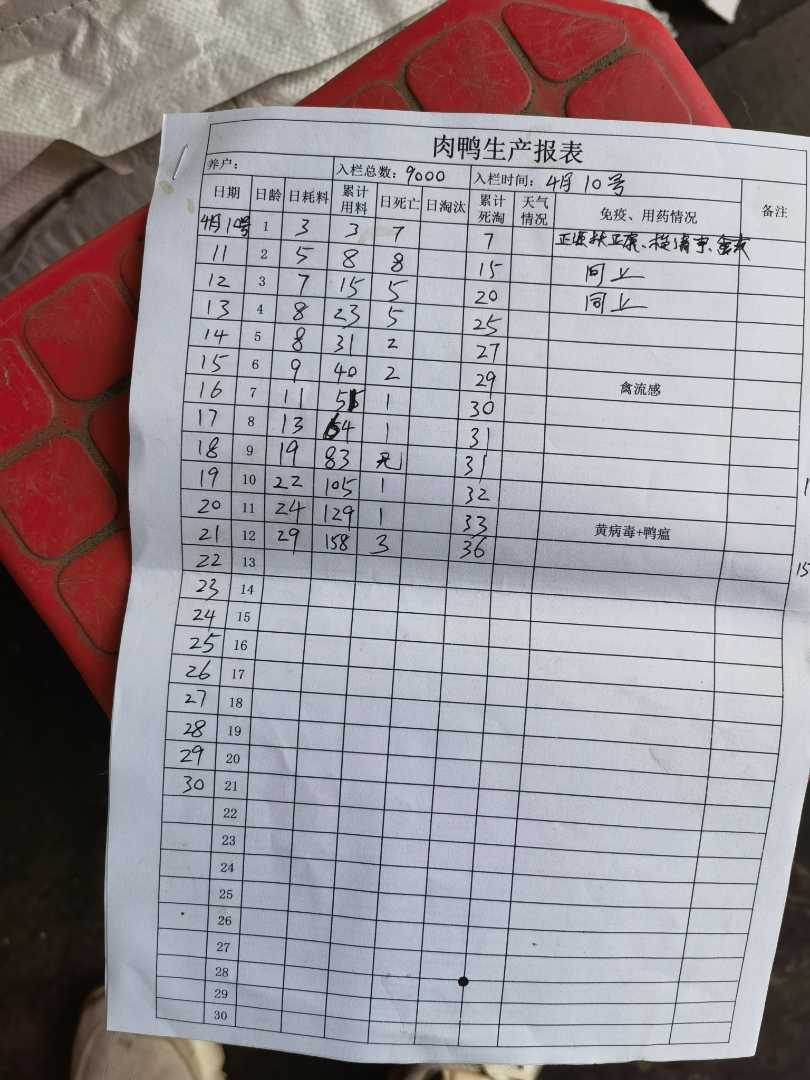 肉鸭生产报表
养户： 入栏总数：9000 入栏时间：4月10号
日期 日龄 日耗料 累计用料 日死亡 日淘汰 累计死淘 天气情况 免疫、用药情况 备注
4月10号 1 3 3 7 7
11 2 5 8 8 15 同上
12 3 7 15 5 20 同上
13 4 8 23 5 25
14 5 8 31 2 27
15 6 9 40 2 29 禽流感
16 7 11 51 1 30
17 8 13 64 1 31
18 9 19 83 无 31
19 10 22 105 1 32
20 11 24 129 1 33 黄病毒+鸭瘟
21 12 29 158 3 36
22 13
23 14
24 15
25 16
26 17
27 18
28 19
29 20
30 21
22
23
24
25
26
27
28
29
30